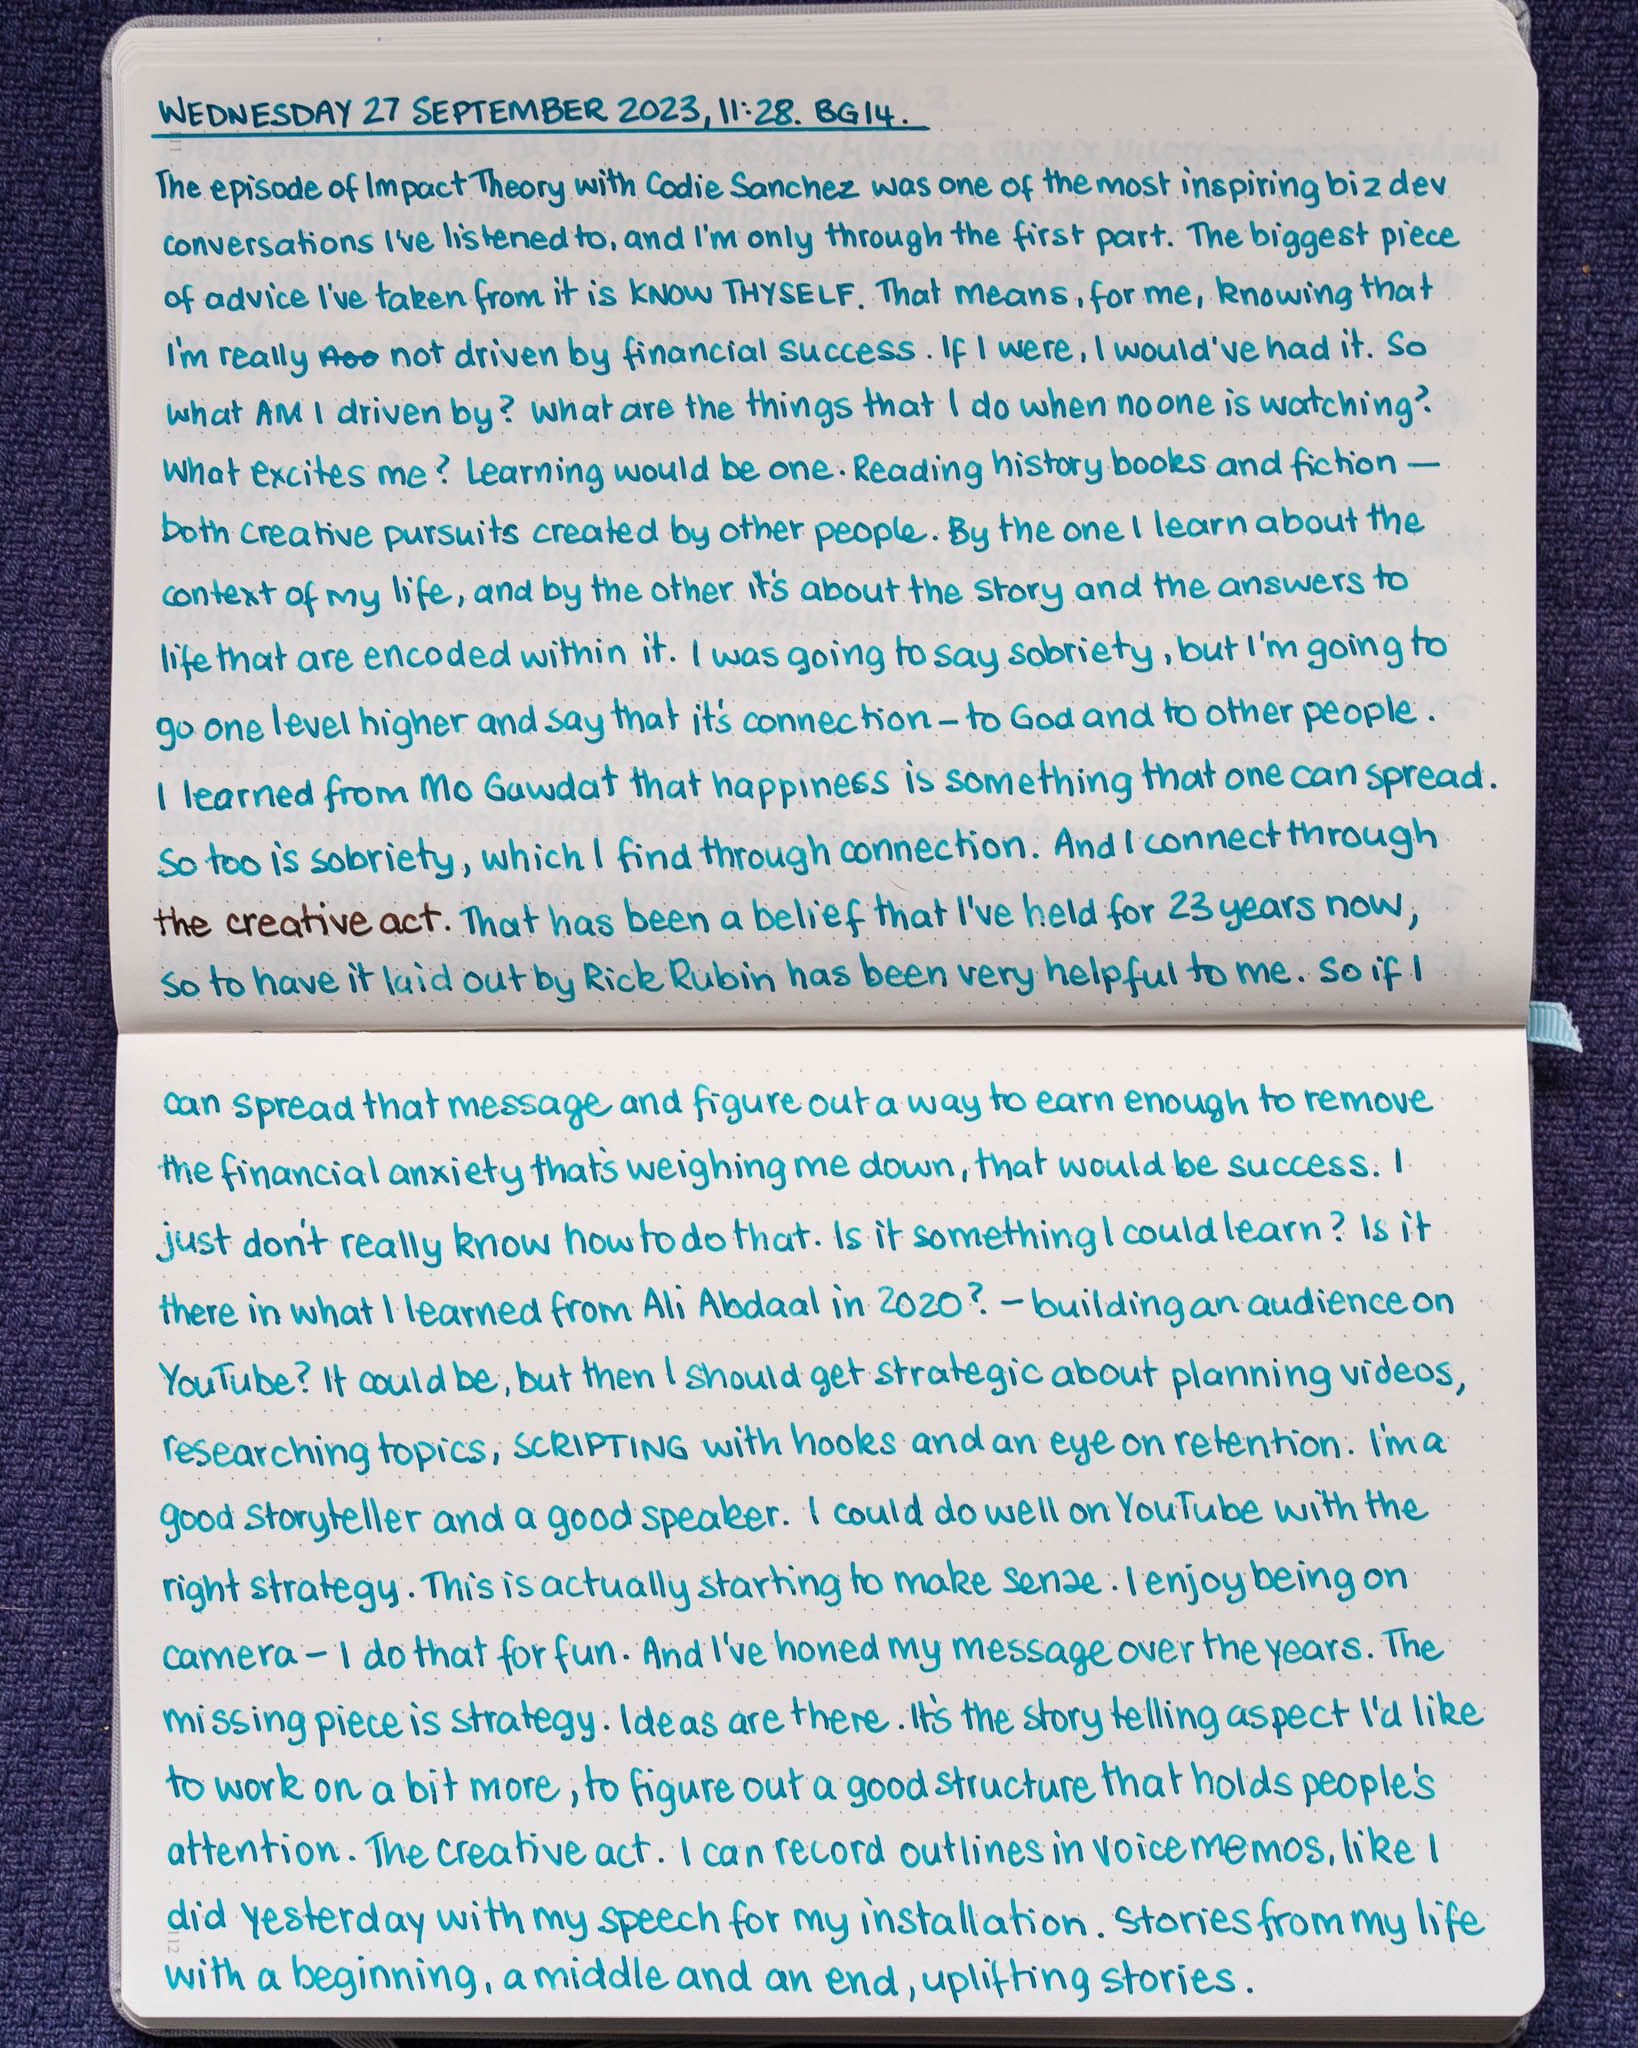 WEDNESDAY 27 SEPTEMBER 2023, 11:28. BG14.
The episode of Impact Theory with Codie Sanchez was one of the most inspiring biz dev
conversations I've listened to, and I'm only through the first part. The biggest piece
of advice I've taken from it is KNOW THYSELF. That means, for me, knowing that
I'm really not driven by financial success. If I were, I would've had it. So
what AM I driven by? What are the things that I do when no one is watching?
What excites me? Learning would be one. Reading history books and fiction —
both creative pursuits created by other people. By the one I learn about the
context of my life, and by the other it's about the story and the answers to
life that are encoded within it. I was going to say sobriety, but I'm going to
go one level higher and say that it's connection – to God and to other people.
I learned from Mo Gawdat that happiness is something that one can spread.
So too is sobriety, which I find through connection. And I connect through
the creative act. That has been a belief that I've held for 23 years now,
so to have it laid out by Rick Rubin has been very helpful to me. So if I
can spread that message and figure out a way to earn enough to remove
the financial anxiety that's weighing me down, that would be success. I
just don't really know how to do that. Is it something I could learn? Is it
there in what I learned from Ali Abdaal in 2020? – building an audience on
YouTube? It could be, but then I should get strategic about planning videos,
researching topics, SCRIPTING with hooks and an eye on retention. I'm a
good storyteller and a good speaker. I could do well on YouTube with the
right strategy. This is actually starting to make sense. I enjoy being on
camera – I do that for fun. And I've honed my message over the years. The
missing piece is strategy. Ideas are there. It's the story telling aspect I'd like
to work on a bit more, to figure out a good structure that holds people's
attention. The creative act. I can record outlines in voice memos, like I
did yesterday with my speech for my installation. Stories from my life
112
with a beginning, a middle and an end, uplifting stories.